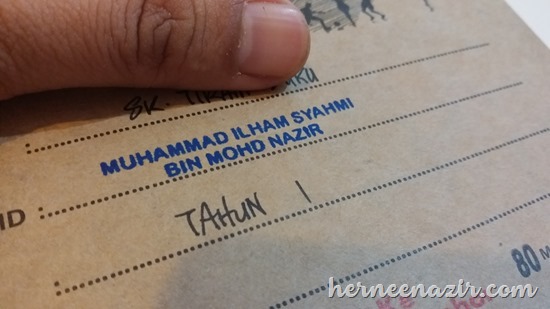 SK.
MUHAMMAD ILHAM SYAHMI
BIN MOHD NAZIR
TAHUN 1
80
herneenazir.com